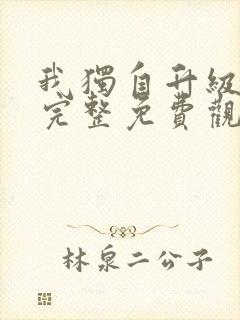 我獨自升級
完整免費觀
林泉二公子